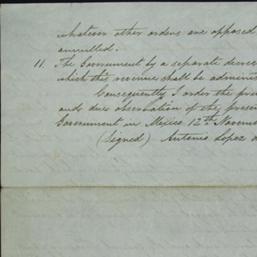 whatever other orders are opposed
annulled.
11. The Government by a separate decree
which this revenue shall be adminis
Consequently I order the
and due observation of the
Government in Mexico 12th Novem
(Signed) Antonio Lopez